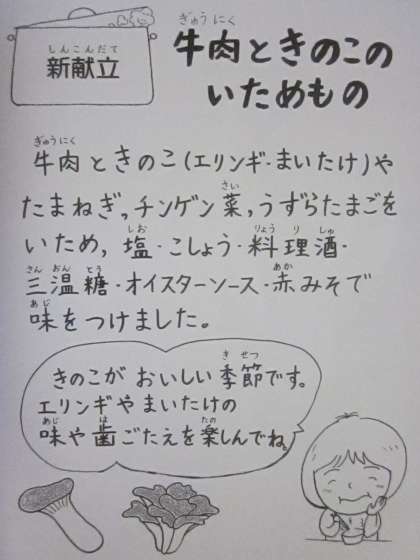 しんこんだて
新献立
ぎゅうにく
牛肉ときのこの
いためもの
ぎゅうにく
牛肉ときのこ(エリンギ・まいたけ)や
さい
たまねぎ,チンゲン菜,うずらたまごを
しお りょうりしゅ
いため,塩・こしょう・料理酒・
さんおんとう あか
三温糖・オイスターソース・赤みそで
あじ
味をつけました。
きせつ
きのこがおいしい季節です。
エリンギやまいたけの
あじ は たの
味や歯ごたえを楽しんでね。